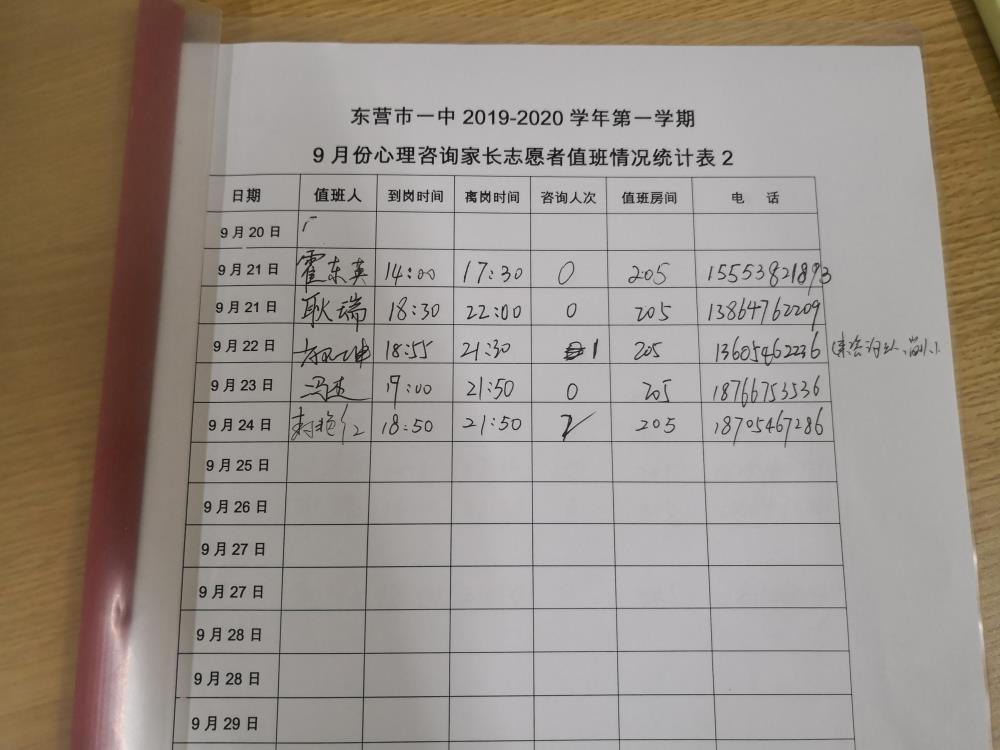 东营市一中 2019-2020 学年第一学期
9 月份心理咨询家长志愿者值班情况统计表 2
日期 值班人 到岗时间 离岗时间 咨询人次 值班房间 电 话
9 月 20 日
9 月 21 日 霍东英 14:00 17:30 0 205 15553821893
9 月 21 日 耿瑞 18:30 22:00 0 205 13864762209
9 月 22 日 18:55 21:30 1 205 13605462236
9 月 23 日 冯杰 17:00 21:50 0 205 18766753536
9 月 24 日 封艳红 18:50 21:50 2 205 18705467286
9 月 25 日
9 月 26 日
9 月 27 日
9 月 27 日
9 月 28 日
9 月 28 日
9 月 29 日